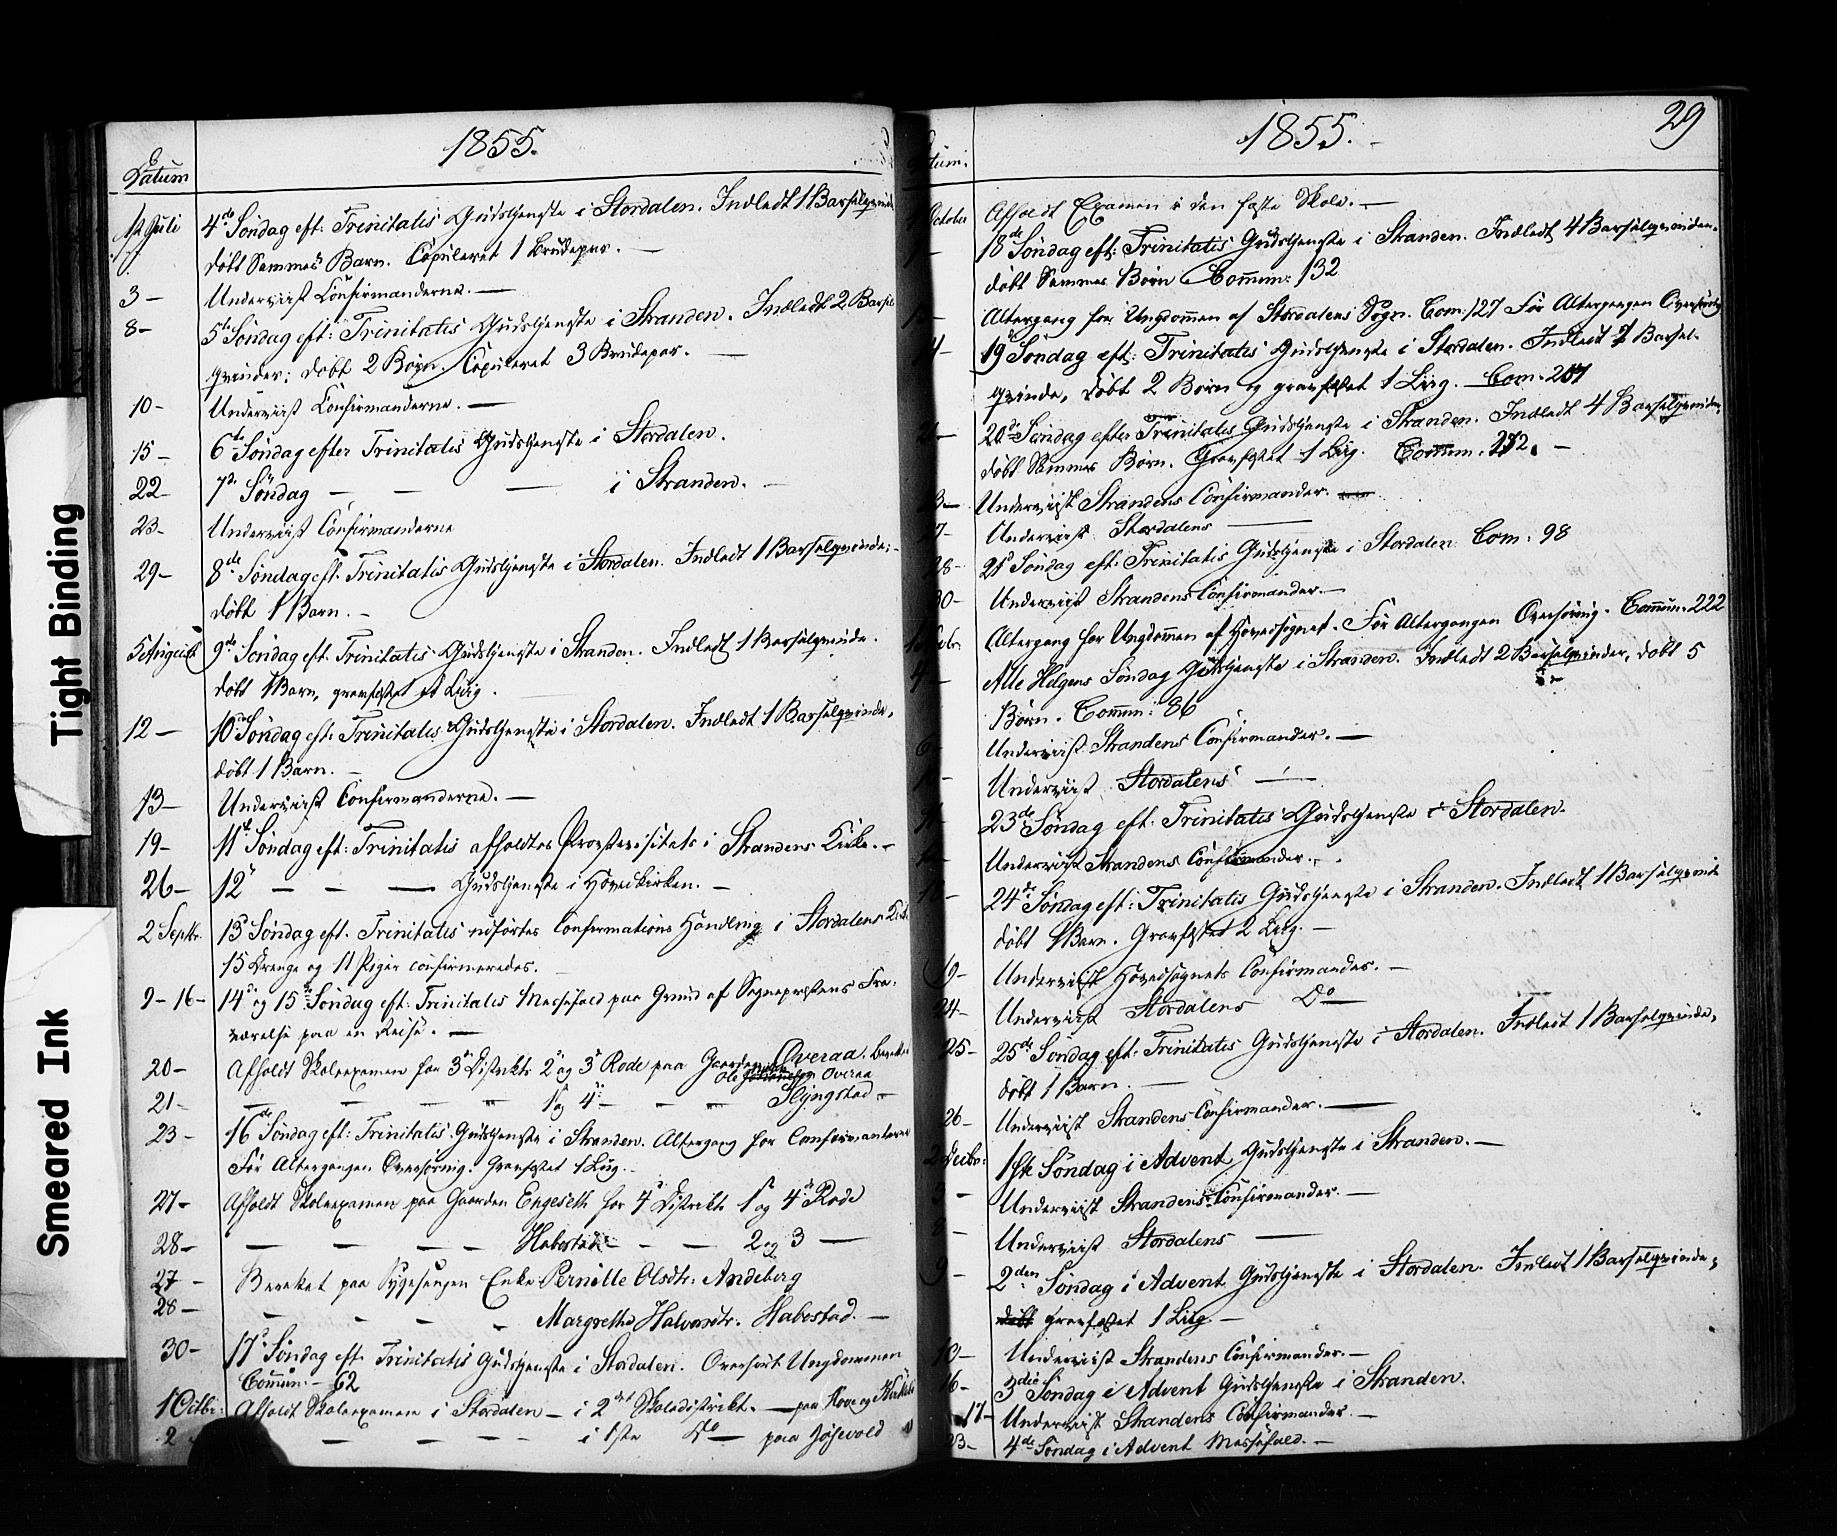 Tight Binding
Smeared Ink
1855.
Datum
1ste Juli 4de Søndag eft: Trinitatis Gudstjeneste i Stordalen. Indledt 1 Barselqvinde
døbt Sammes Barn. Copuleret 1 Brudepar. —
3 — Underviist Confirmanderne. —
8 — 5te Søndag eft: Trinitatis Gudstjeneste i Stranden. Indledt 2 Barsel
qvinder; døbt 2 Børn. Copuleret 3 Brudepar. —
10 — Underviist Confirmanderne. —
15 — 6te Søndag efter Trinitatis Gudstjeneste i Stordalen.
22 — 7de Søndag — — — i Stranden. —
23 — Underviist Confirmanderne
29 — 8de Søndag eft. Trinitatis Gudstjeneste i Stordalen. Indledt 1 Barselqvinde; —
døbt 1 Barn. —
5 August 9de Søndag eft. Trinitatis Gudstjeneste i Stranden. Indledt 1 Barselqvinde.
døbt 1 Barn, gravfæstet et Liig.
12 — 10de Søndag eft. Trinitatis Gudstjeneste i Stordalen. Indledt 1 Barselqvinde,
døbt 1 Barn. —
13 — Underviist Confirmanderne. —
19 — 11te Søndag eft: Trinitatis afholdtes Provstevisitats i Strandens Kirke. —
26 — 12te — — — Gudstjeneste i Hovedkirken. —
2 Septbr. 13de Søndag eft. Trinitatis udførtes Confirmations Handling i Stordalens Kirke
15 Drenge og 11 Piger confirmeredes.
9 - 16 — 14de og 15de Søndag eft: Trinitatis Messefald paa Grund af Sognepræstens Fra-
værelse paa en Reise. —
20 — Afholdt Skoleexamen for 3de Distrikts 2de og 3de Rode paa Gaarden Overaa.
Ole Overaa
21 — — — — — 1 og 4de — — — Slyngstad —
23 — 16de Søndag eft: Trinitatis Gudstjeneste i Stranden. Altergang for Confirmanterne
Før Altergangen Overhøring. Gravfæstet 1 Liig. —
27 — Afholdt Skoleexamen paa Gaarden Engeseth for 4de Distrikts 1ste og 4de Rode
28 — — — — — Habostad — — — 2 og 3 —
27 — Berettet paa Sygesengen Enke Pernille Olsdtr: Andeberg
28 — — — — — Margrethe Halvorsdtr. Habostad. —
30 — 17de Søndag eft. Trinitatis Gudstjeneste i Stordalen. Overhørt Ungdommen
Commun: — 62
1 Octbr: Afholdt Skoleexamen i Stordalen — i 2det Skoledistrikt. — paa Hove og
2 — — — — i 1ste Do — paa Høievold
1855. 29
Datum.
October Afholdt Examen i den faste Skole. —
7 — 18de Søndag eft: Trinitatis Gudstjeneste i Stranden. Indledt 4 Barselqvinder.
døbt Sammes Børn Commun: 132
Altergang for Ungdommen af Stordalens Sogn. Com: 127 Før Altergangen Overhøring
14 — 19de Søndag eft: Trinitatis Gudstjeneste i Stordalen. Indledt 1 Barsel-
qvinde, døbt 2 Børn og gravfæstet 1 Liig. — Com: 207
21 — 20de Søndag efter Trinitatis Gudstjeneste i Stranden. Indledt 4 Barselqvinder,
døbt Sammes Børn. Gravfæstet 1 Liig. Commun. 272. —
23 — Underviist Strandens Confirmander.
27 — Underviist Stordalens —
28 — 21de Søndag eft. Trinitatis Gudstjeneste i Stordalen Com: 98
30 — Underviist Strandens Confirmander. —
Altergang for Ungdommen af Hovedsognet. Før Altergangen Overhøring. Commun: 222
4 — Alle Helgens Søndag Gudstjeneste i Stranden. Indledt 2 Barselqvinder, døbt 5
Børn. Commun: 86
6 — Underviist Strandens Confirmander. —
Underviist Stordalens —
23de Søndag eft. Trinitatis Gudstjeneste i Stordalen.
Underviist Strandens Confirmander. —
24de Søndag eft: Trinitatis Gudstjeneste i Stranden. Indledt 1 Barselqvinde
døbt 1 Barn. Gravfæstet 2 Liig. —
19 — Underviist Hovedsognets Confirmander. —
24 — Underviist Stordalens Do —
25 — 25de Søndag eft: Trinitatis Gudstjeneste i Stordalen. Indledt 1 Barselqvinde,
døbt 1 Barn. —
26 — Underviist Strandens Confirmander. —
2 Decbr: 1ste Søndag i Advent Gudstjeneste i Stranden. —
3 — Underviist Strandens Confirmander. —
8 — Underviist Stordalens —
9 — 2den Søndag i Advent Gudstjeneste i Stordalen. Indledt 1 Barselqvinde;
døbt gravfæstet 1 Liig —
10 — Underviist Strandens Confirmander. —
16 — 3die Søndag i Advent Gudstjeneste i Stranden.
17 — Underviist Strandens Confirmander. —
23 — 4de Søndag i Advent Messefald. —